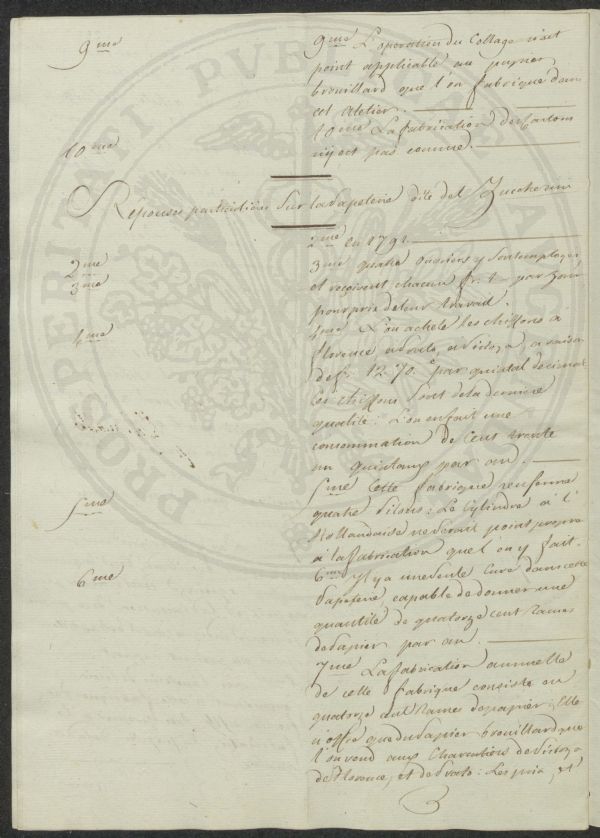 9me
9me L'operation du Collage n'est
point applicable au papier
brouillard que l'on fabrique dans
cet Atelier.
10me
10me La fabrication des Cartons
n'y est pas connue.
Réponses particulières Sur la Papeterie dite del Zuccherini
2me
2me en 1791.
3me
3me quatre Ouvriers y sont employés
et reçoivent chacun fr. 1 par jour
pour prix de leur travail.
4me
4me L'on achete les chiffons à
florence, a Prato, a Pistoja, a raison
de fr. 12.70.c par quintal decimal
les chiffons sont de la derniere
qualité: L'on en fait une
consommation de Cent trente
un quintaux par an.
5me
5me Cette fabrique renferme
quatre Pilons: Le Cylindre à l'
Hollandaise ne serait point propre
à la fabrication que l'on y fait.
6me
6me Il y a une seule Cuve dans cette
Papeterie capable de donner une
quantité de quatorze cent Rames
de Papier par an.
7me La fabrication annuelle
de cette fabrique consiste en
quatorze cent Rames de papier: Elle
n'offre que du Papier brouillard que
l'on vend aux Charcutiers de Pistoja
de Florence, et de Prato: Les prix, et
PROSPERITATI PVBLICAE